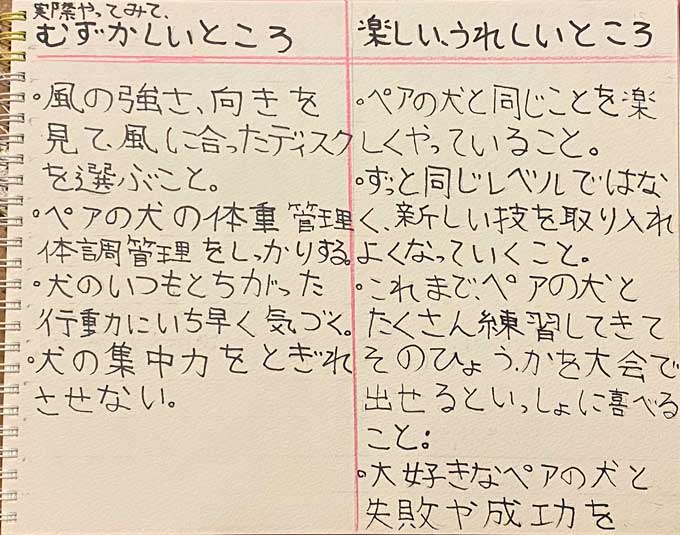 実際やってみて、
むずかしいところ
・風の強さ、向きを
見て、風に合ったディスク
を選ぶこと。
・ペアの犬の体重管理
体調管理をしっかりする。
・犬のいつもとちがった
行動力にいち早く気づく。
・犬の集中力をとぎれ
させない。
楽しい、うれしいところ
・ペアの犬と同じことを楽
しくやっていること。
・ずっと同じレベルではな
く、新しい技を取り入れ
よくなっていくこと。
・これまで、ペアの犬と
たくさん練習してきて
そのひょうかを大会で
出せるといっしょに喜べる
こと。
・大好きなペアの犬と
失敗や成功を